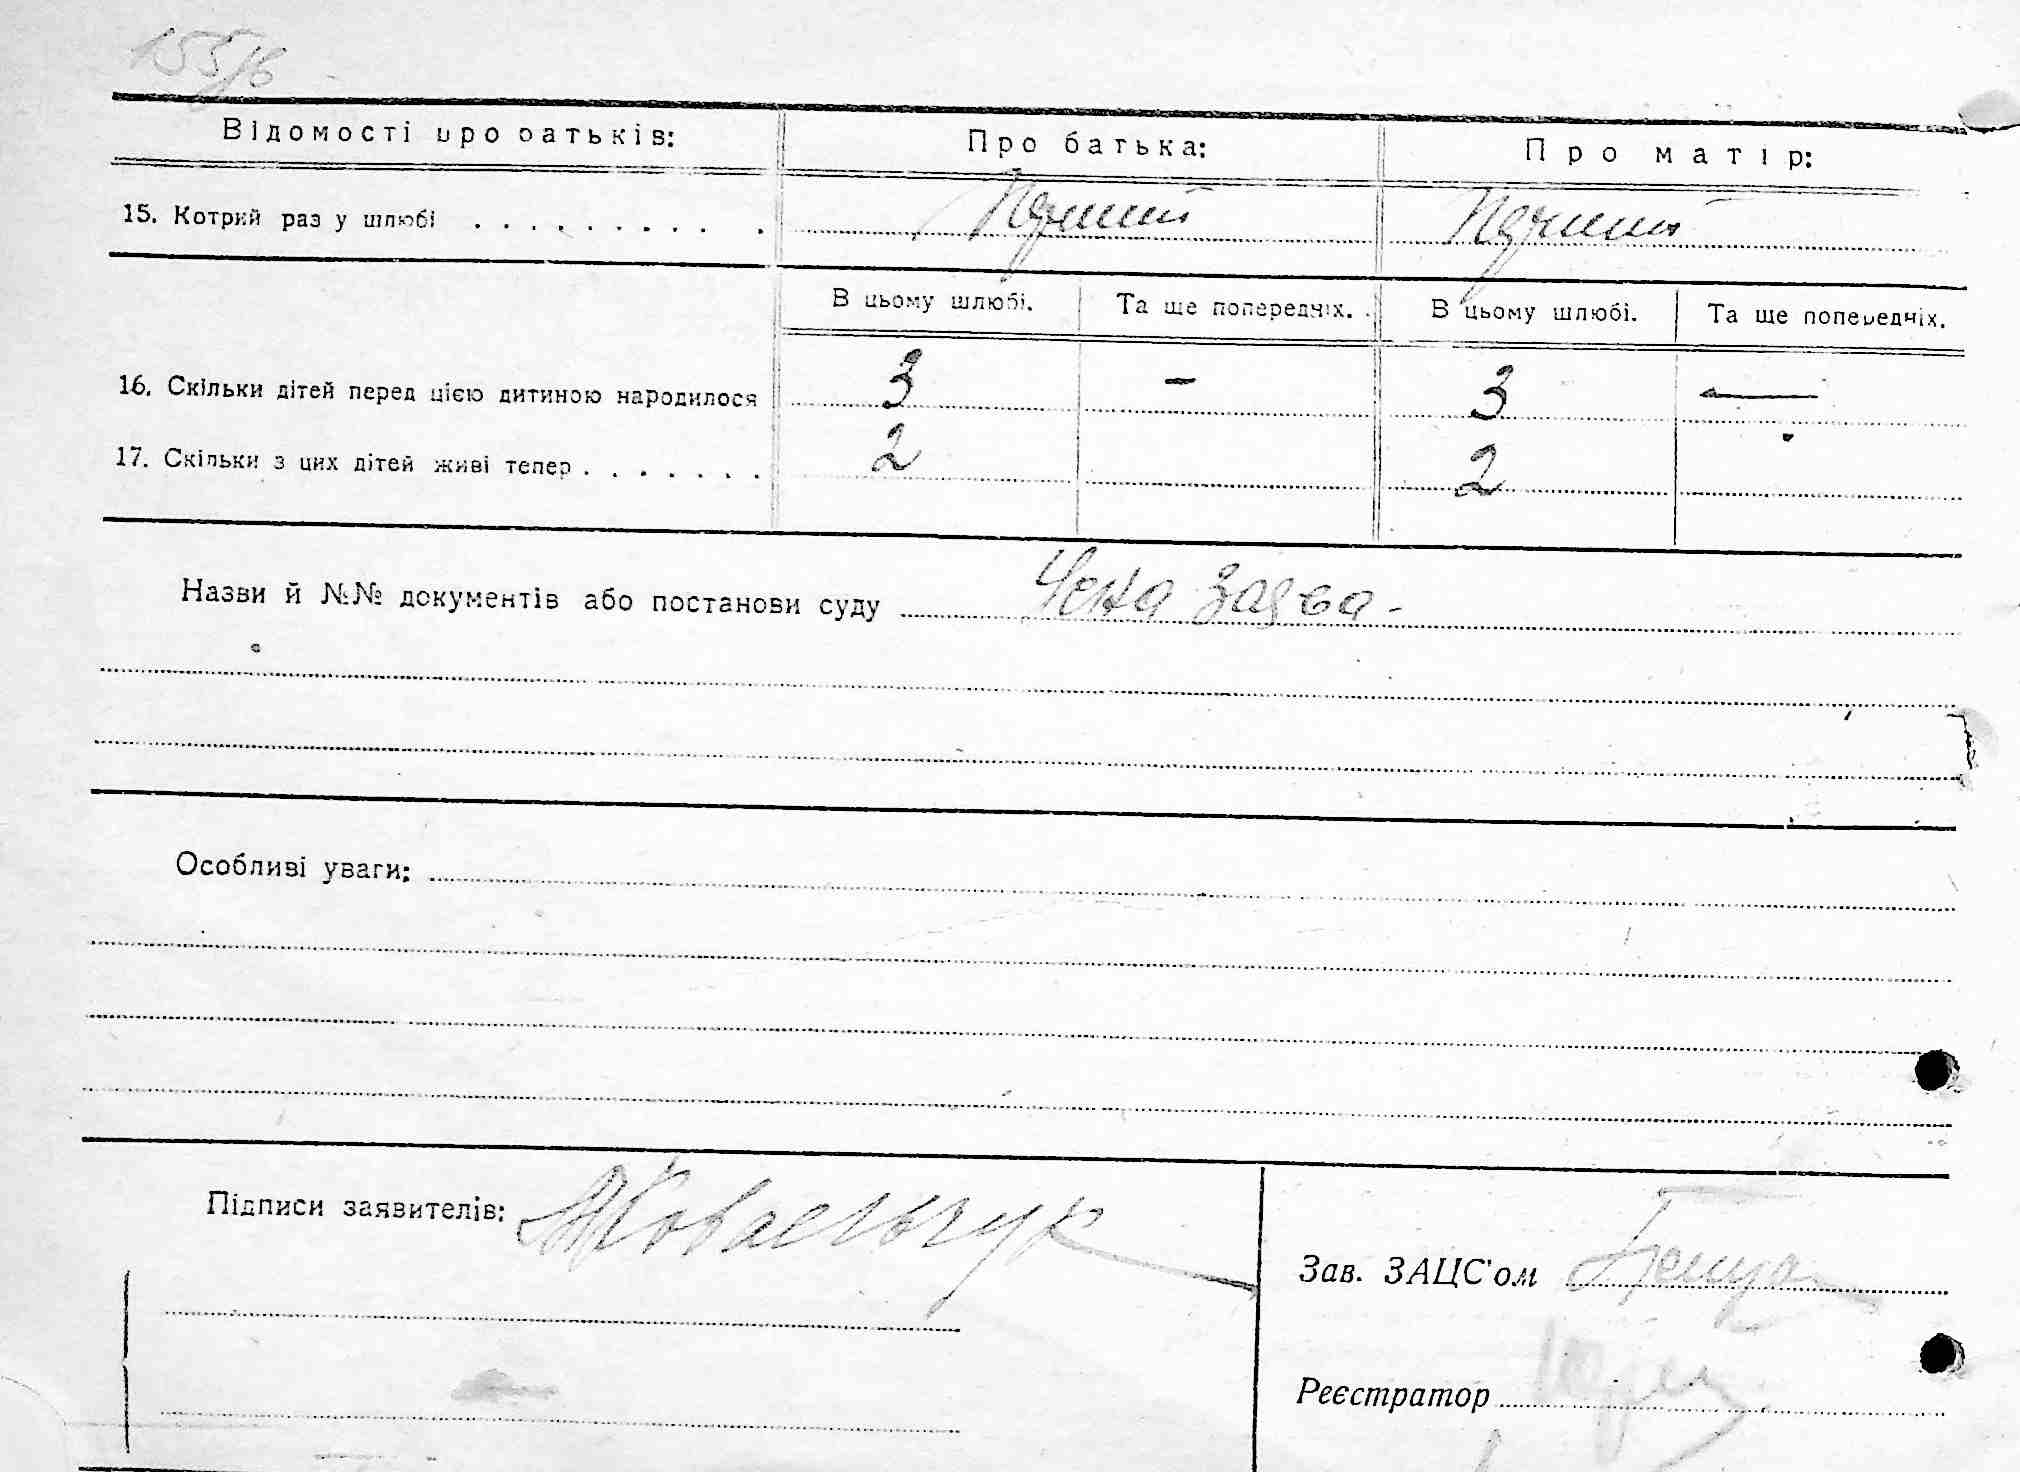 155/в
Відомості про батьків: Про батька: Про матір:
15. Котрий раз у шлюбі . . . . . . . . . . Перший Перший
В цьому шлюбі. Та ще попередніх. В цьому шлюбі. Та ще попередніх.
16. Скільки дітей перед цією дитиною народилося 3 - 3 —
17. Скільки з цих дітей живі тепер . . . . . . . 2 2
Назви й №№ документів або постанови суду заява -
Особливі уваги:
Підписи заявителів: Ковальчук
Зав. ЗАЦС'ом
Реєстратор